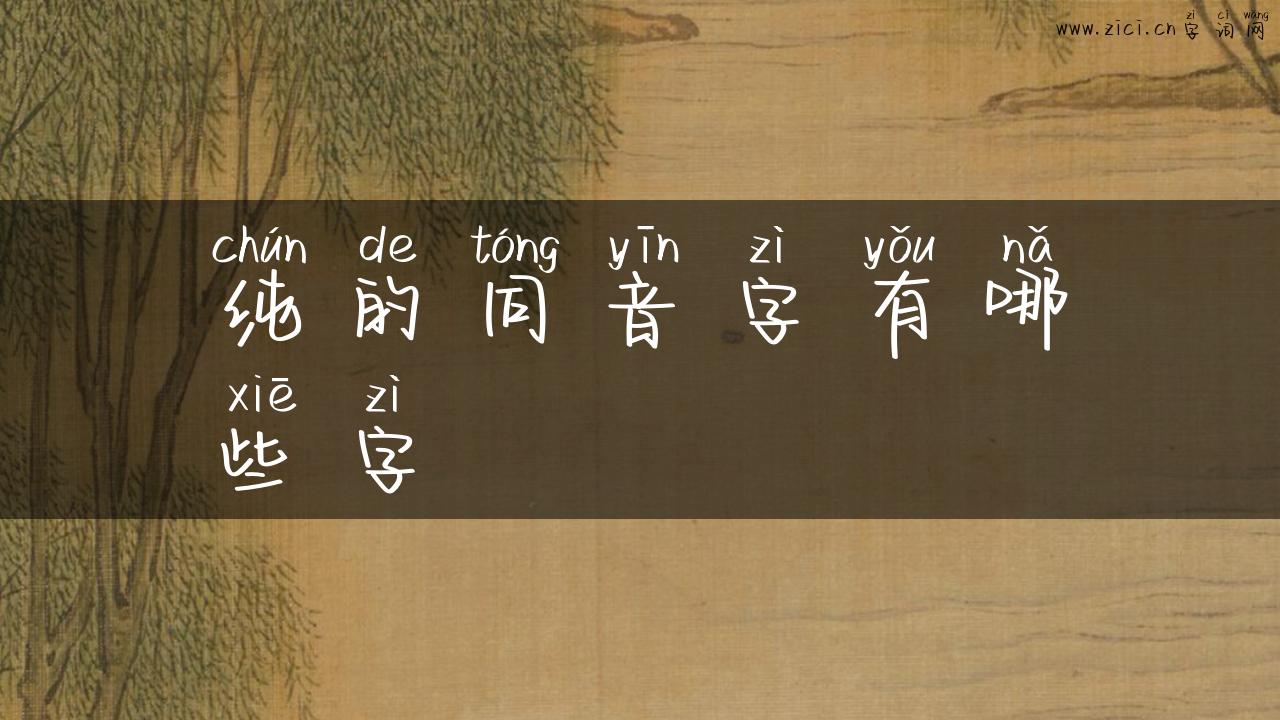 zì cí wǎng
www.zici.cn 字词网
chún de tóng yīn zì yǒu nǎ
纯的同音字有哪
xiē zì
些字